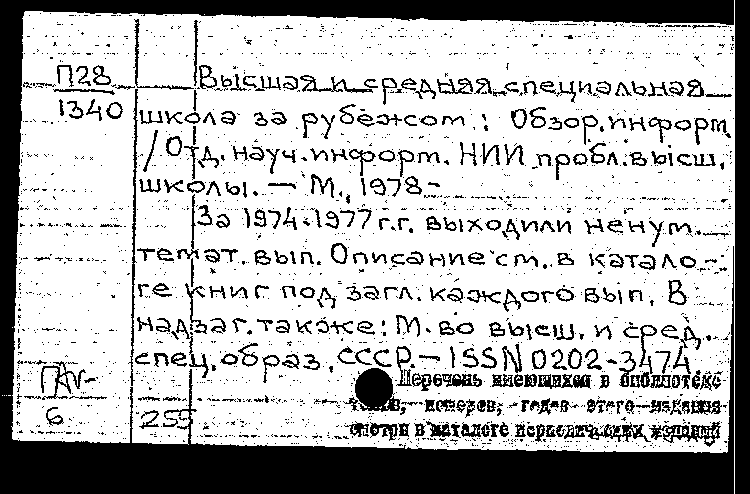 П28
1340
Высшая и средняя специальная
школа за рубежом.: Обзор.информ
/Отд. науч.информ. НИИ пробл.высш.
школы. — М., 1978-
За 1974-1977г.г. выходили ненум.
темат. вып. Описание см. в катало-
ге книг под загл. каждого вып. В
надзаг. также: М-во высш. и сред.
спец. образ. СССР — ISSN 0202-3474
Перечень имеющихся в библиотеке
томов, номеров, годов этого издания
смотри в каталоге периодических изданий
6
255